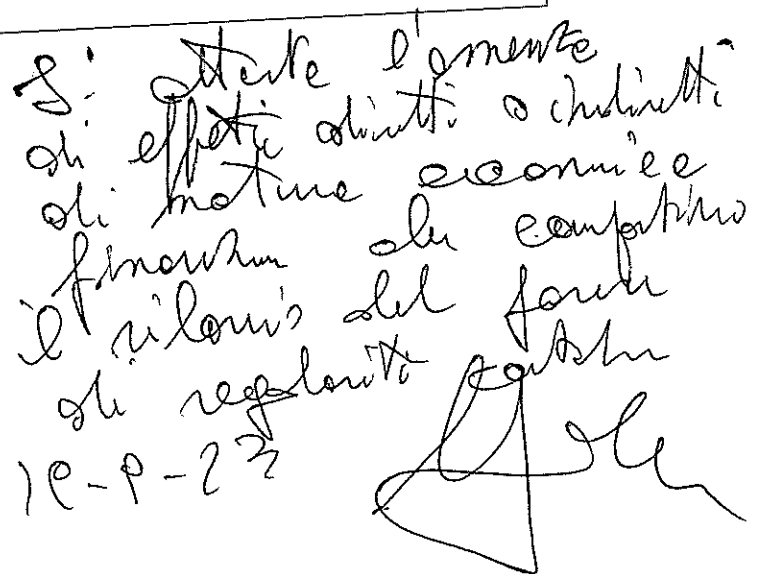 Si attesta l'assenza
di effetti diretti o indiretti
di natura economica
finanziaria che comportino
il rilascio del parere
di regolarità contabile